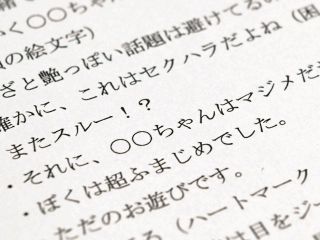 く○○ちゃん
の絵文字）
ざと艶っぽい話題は避けてるの
確かに、これはセクハラだよね（困
またスルー！？
・それに、○○ちゃんはマジメだ
・ぼくは超ふまじめでした。
ただのお遊びです。
る（ハートマーク
は目をジー